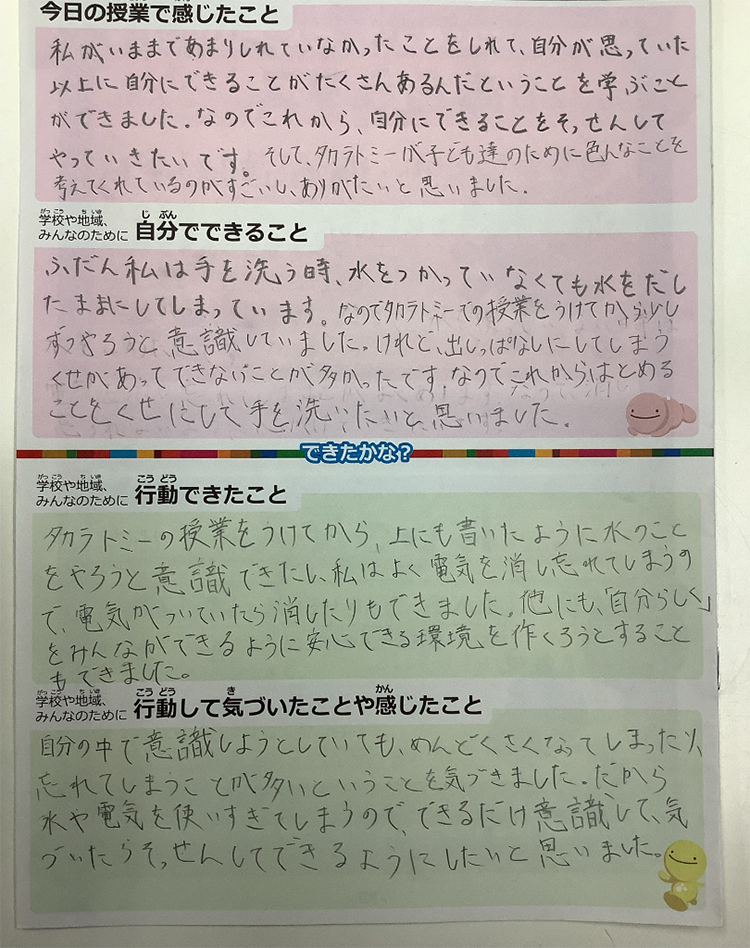 今日の授業で感じたこと
私がいままであまりしれていなかったことをしれて、自分が思っていた
以上に自分にできることがたくさんあるんだということを学ぶこと
ができました。なのでこれから、自分にできることをそっせんして
やっていきたいです。そして、タカラトミーが子ども達のために色んなことを
考えてくれているのがすごいし、ありがたいと思いました。
学校や地域、がっこう ちいき
みんなのために 自分でできること じぶん
ふだん私は手を洗う時、水をつかっていなくても水をだし
たままにしてしまっています。なのでタカラトミーでの授業をうけてから少し
ずつやろうと意識していました。けれど、出しっぱなしにしてしまう
くせがあってできないことが多かったです。なのでこれからはとめる
ことをくせにして手を洗いたいと思いました。
できたかな？
学校や地域、がっこう ちいき
みんなのために 行動できたこと こうどう
タカラトミーの授業をうけてから、上にも書いたように水のこと
をやろうと意識できたし、私はよく電気を消し忘れてしまうの
で、電気がついていたら消したりもできました。他にも、「自分らしく」
をみんなができるように安心できる環境を作くろうとすること
もできました。
学校や地域、がっこう ちいき
みんなのために 行動して気づいたことや感じたこと こうどう き かん
自分の中で意識しようとしていても、めんどくさくなってしまったり、
忘れてしまうことが多いということを気づきました。だから
水や電気を使いすぎてしまうので、できるだけ意識して、気
づいたらそっせんしてできるようにしたいと思いました。